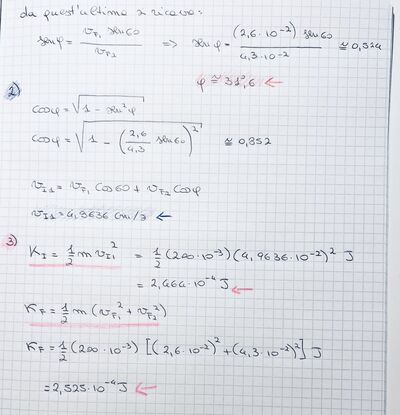 da quest'ultima 2 ricavo:
senφ = v_F1 sen60 / v_F2 => senφ = (2,6·10⁻²) sen60 / 4,3·10⁻² ≅ 0,524
φ ≅ 31°,6 ←
2)
cosφ = √(1 - sen²φ)
cosφ = √(1 - (2,6/4,3 sen60)²) ≅ 0,852
v_I1 = v_F1 cos60 + v_F2 cosφ
v_I1 = 4,9636 cm/s ←
3) K_I = 1/2 m v_I1² = 1/2 (200·10⁻³)(4,9636·10⁻²)² J
= 2,464·10⁻⁴ J ←
K_F = 1/2 m (v_F1² + v_F2²)
K_F = 1/2 (200·10⁻³) [(2,6·10⁻²)² + (4,3·10⁻²)²] J
= 2,525·10⁻⁴ J ←